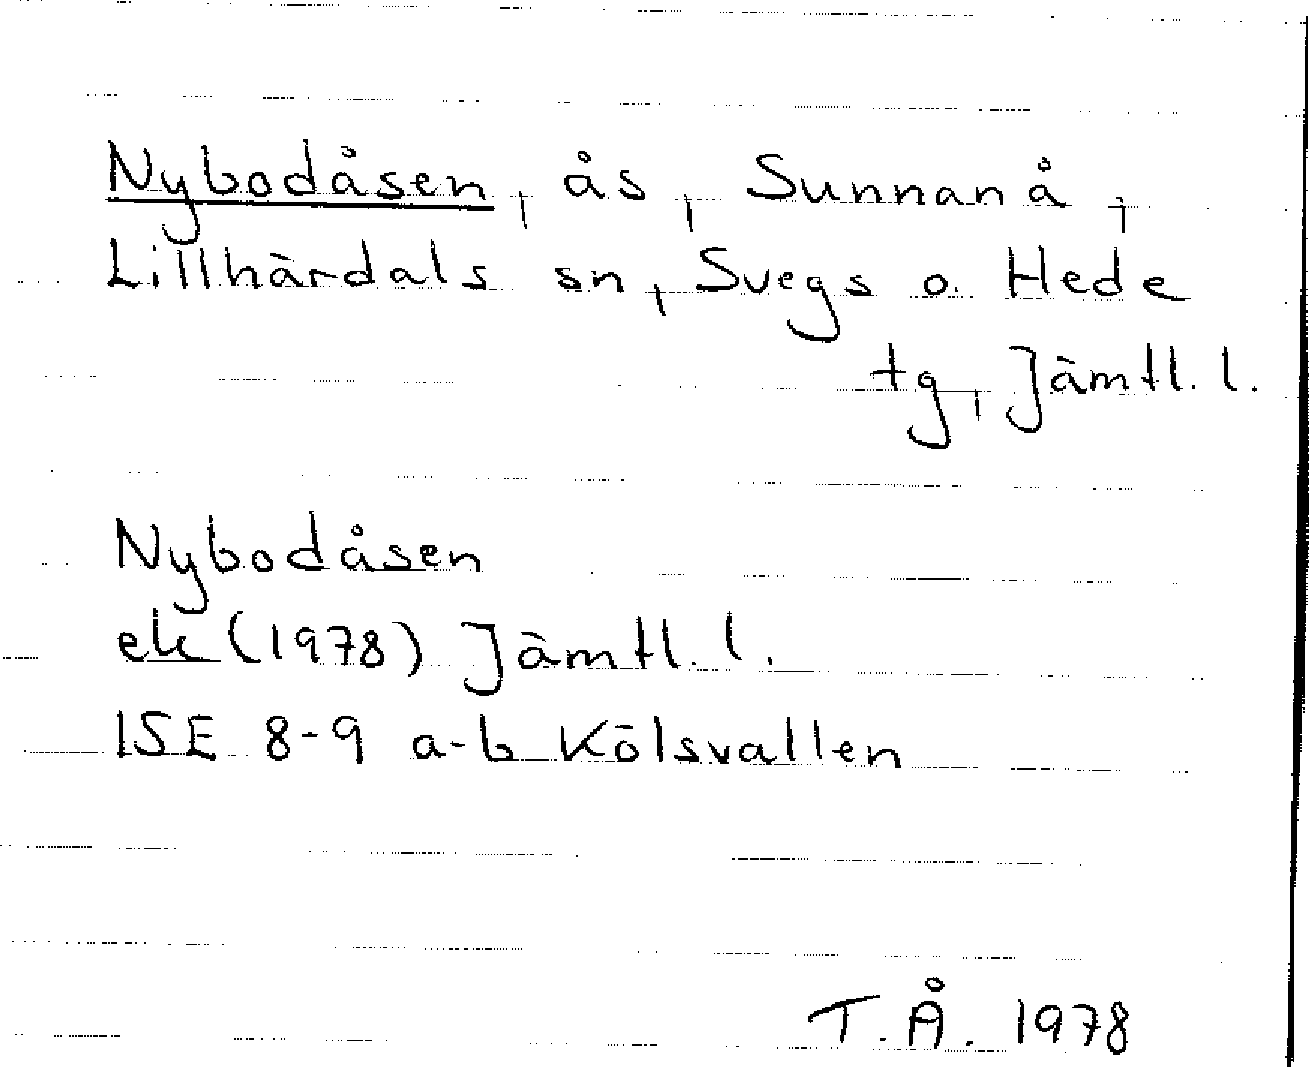 Nybodåsen, ås, Sunnanå,
Lillhärdals sn, Svegs o. Hede
tg, Jämtl. l.
Nybodåsen
ek (1978) Jämtl. l.
15E 8-9 a-b Kölsvallen
T.Å. 1978